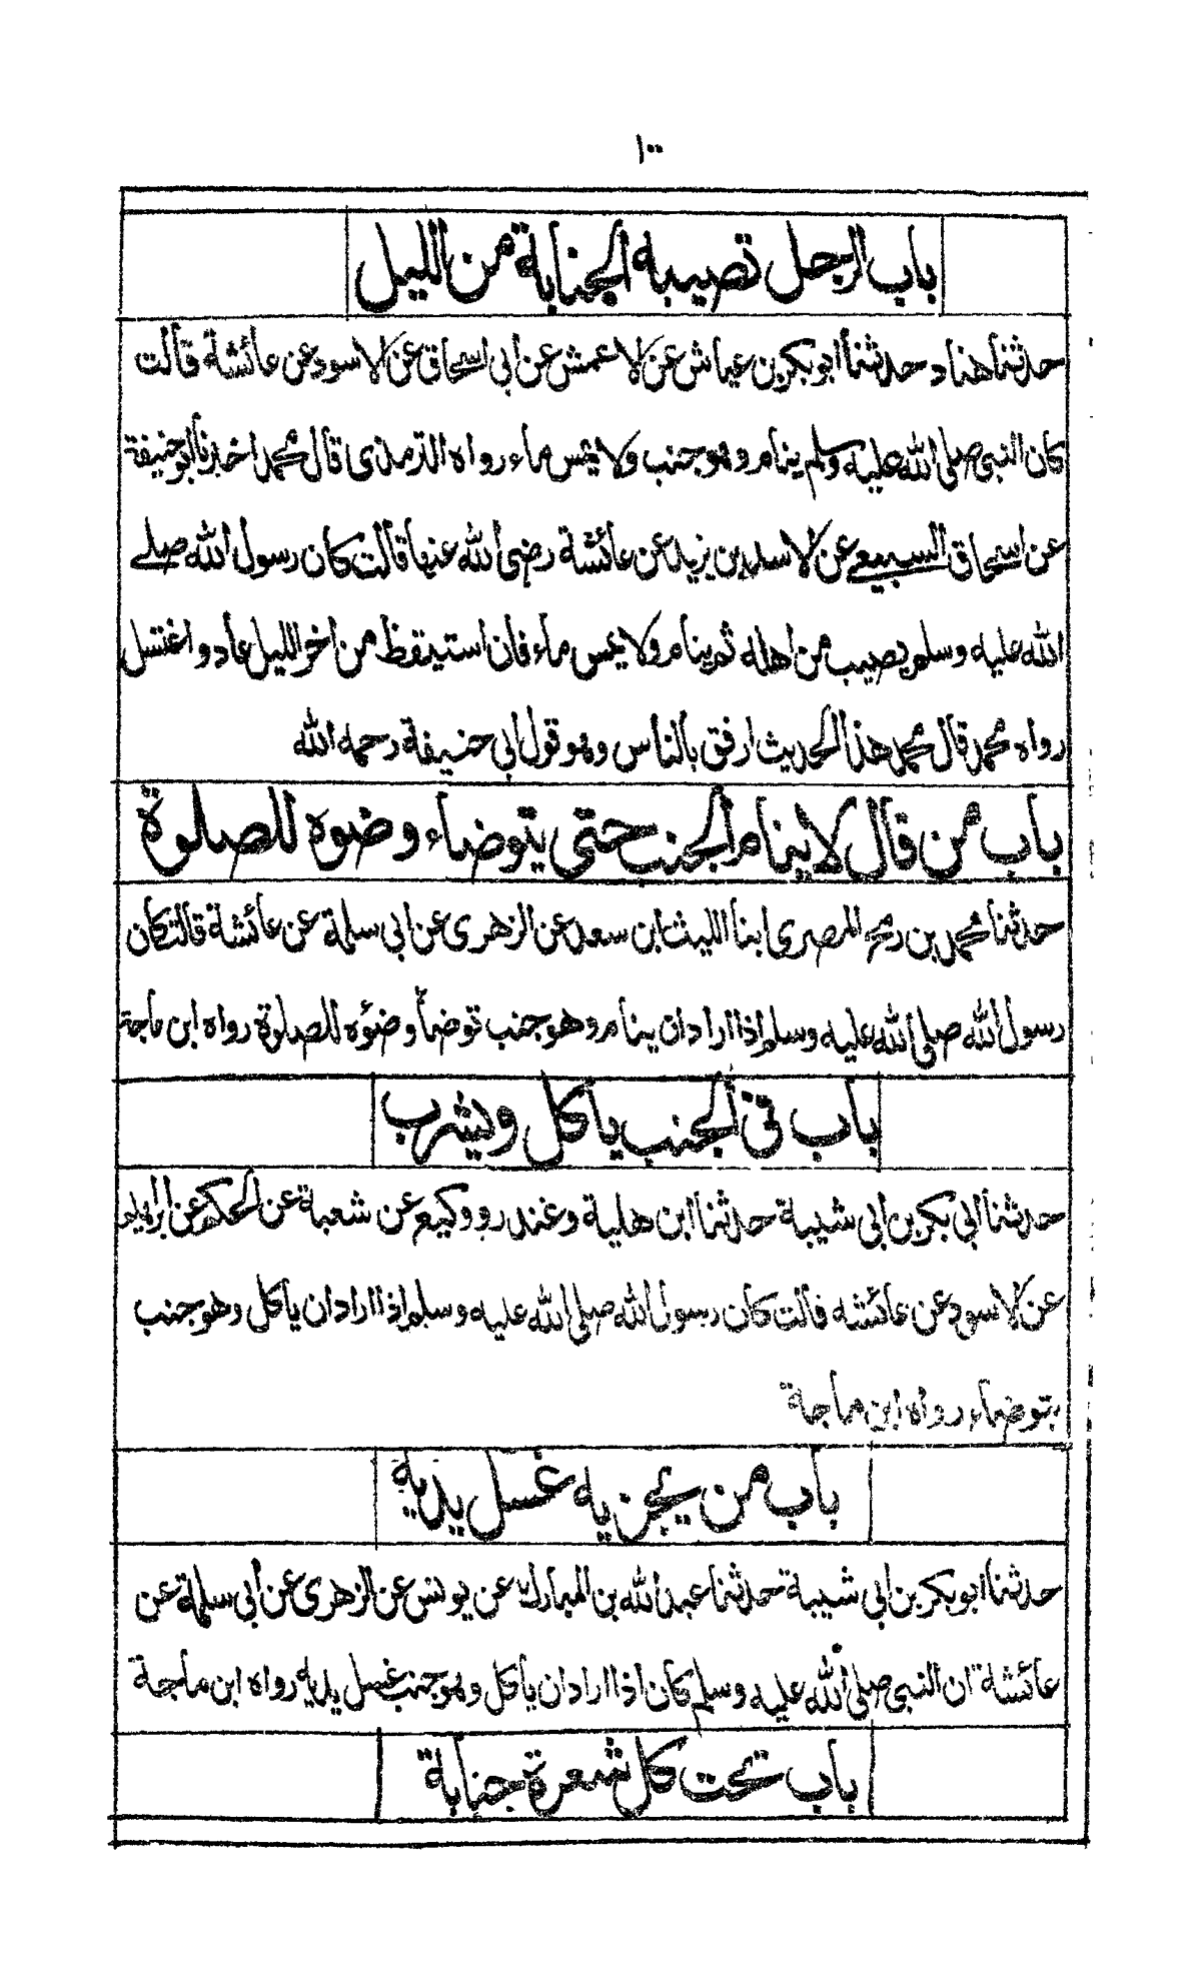 ١٠٠
باب الرجل تصيبه الجنابة من الليل
حدثنا هناد حدثنا ابو بكر بن عياش عن الاعمش عن ابي اسحاق عن الاسود عن عائشة قالت
كان النبي صلى الله عليه وسلم ينام وهو جنب ولا يمس ماء رواه الترمذى قال محمد اخبرنا ابو حنيفة
عن اسحاق السبيعي عن الاسود بن يزيد عن عائشة رضى الله عنها قالت كان رسول الله صلے
الله عليه وسلم يصيب من اهله ثم ينام ولا يمس ماء فان استيقظ من اخر الليل عاد و اغتسل
رواه محمد قال محمد هذا الحديث ارفق بالناس وهو قول ابي حنيفة رحمه الله
باب من قال لا ينام الجنب حتى يتوضاء وضوه للصلوة
حدثنا محمد بن رمح المصرى ابنا الليث ابن سعد عن الزهرى عن ابي سلمة عن عائشة قالت كان
رسول الله صلى الله عليه وسلم اذا اراد ان ينام وهو جنب توضأ وضوئه للصلوة رواه ابن ماجة
باب فى الجنب ياكل ويشرب
حدثنا ابي بكر بن ابي شيبة حدثنا ابن هلية وغندر ووكيع عن شعبة عن الحكم عن ابراهيم
عن الاسود عن عائشه قالت كان رسول الله صلى الله عليه وسلم اذا اراد ان ياكل وهو جنب
يتوضاء رواه ابن ماجة
باب من يجزيه غسل يديه
حدثنا ابو بكر بن ابي شيبة حدثنا عبد الله بن المبارك عن يونس عن الزهرى عن ابي سلمة عن
عائشة ان النبي صلى الله عليه وسلم كان اذا اراد ان ياكل وهو جنب غسل يديه رواه ابن ماجة
باب تحت كل شعرة جنابة